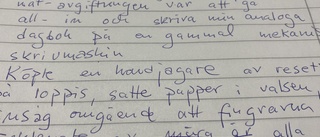 nät-avgiftningen var att gå
all-in och skriva min analoga
dagbok på en gammal mekanis
skrivmaskin
Köpte en handjagare av reset
på loppis, satte papper i valsen,
insåg omgående att fingrarna
alla